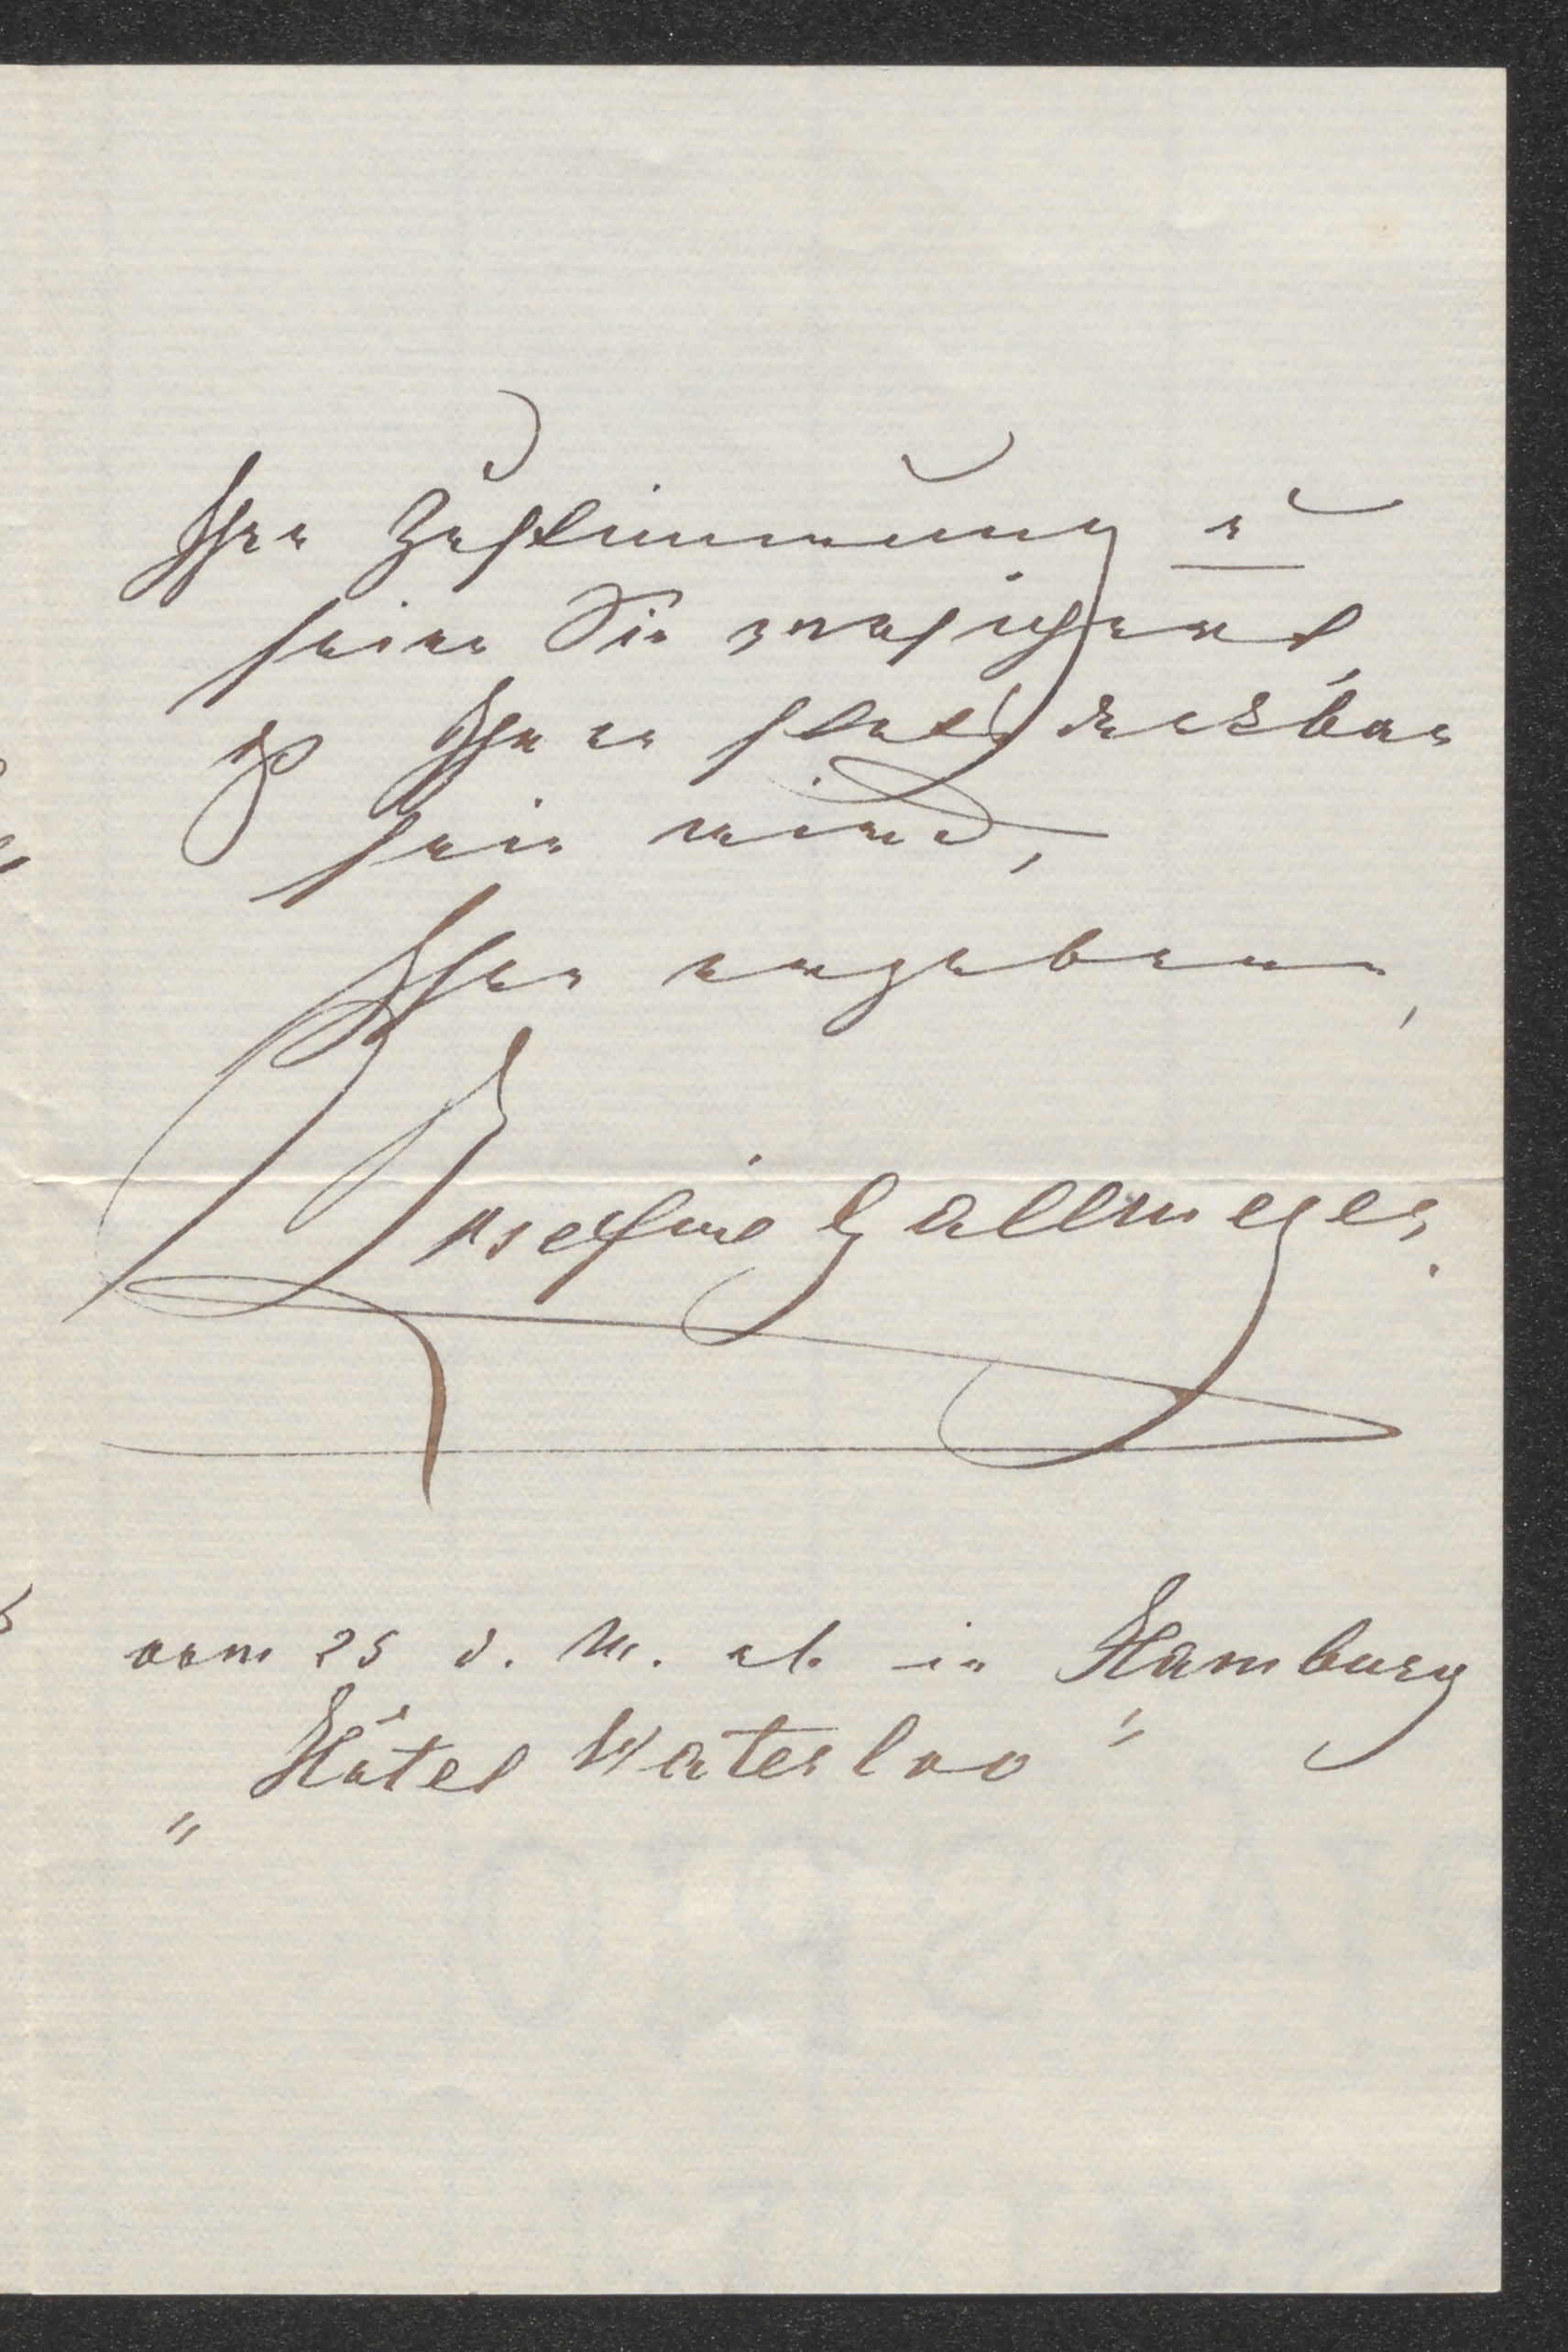 Ihre Zustimmung u
seien Sie versichert,
daß Ihnen stets dankbar
sein wird,
Ihre ergebene,
Josefine Gallmeyer.
vom 25 d. M. ab in Hamburg
„Hôtel Waterloo"